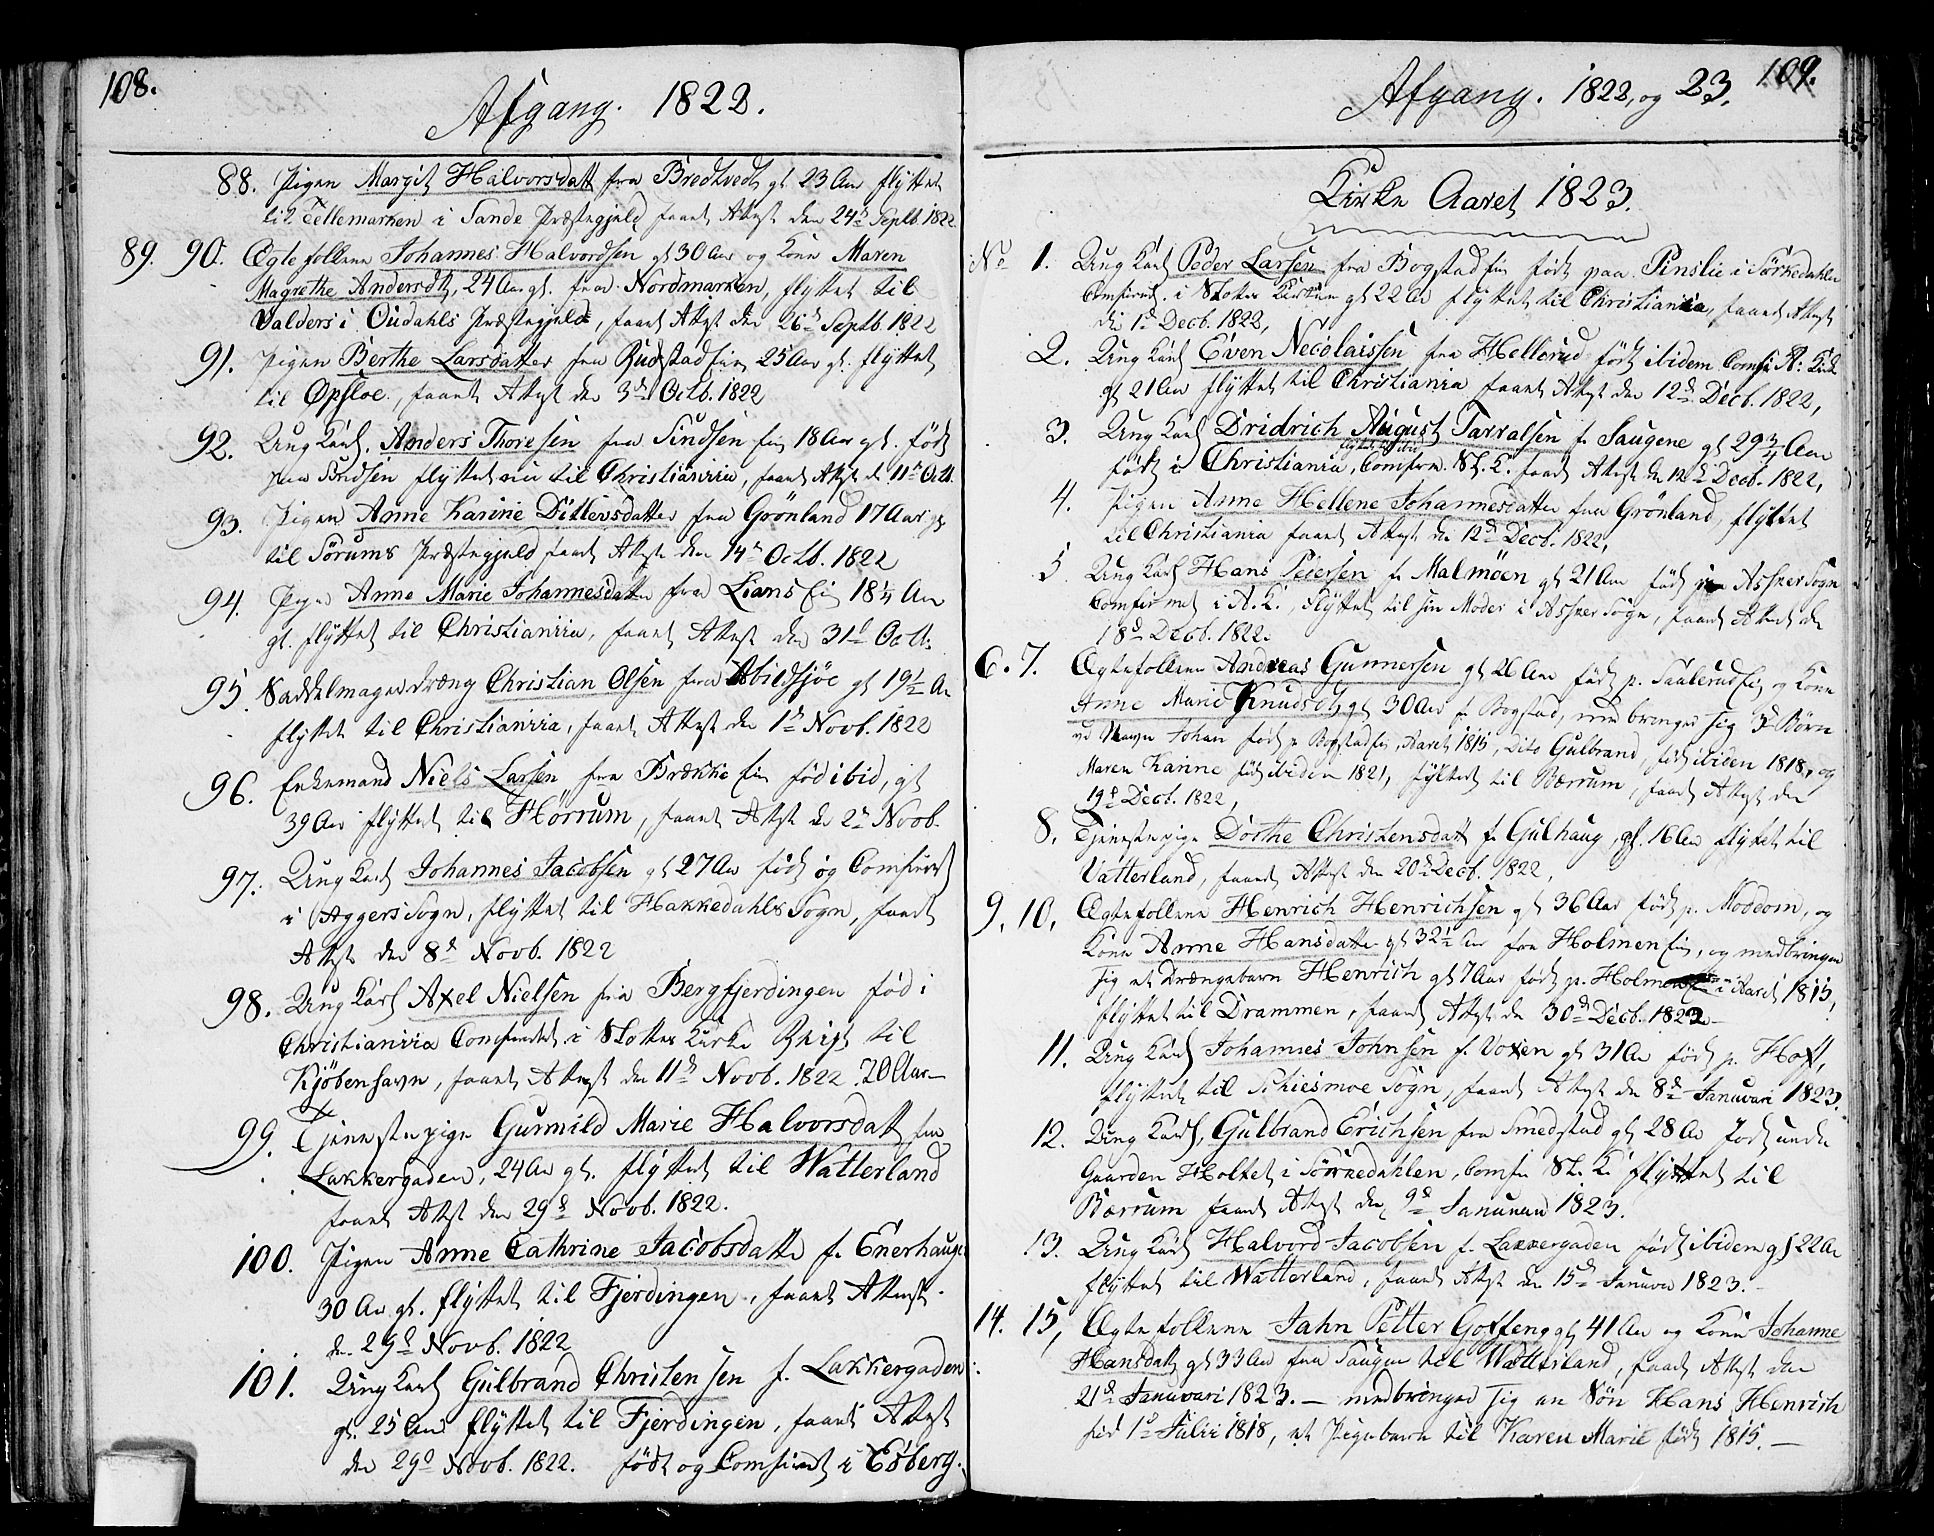 108.
Afgang. 1822.
88. Pigen Margit Halvorsdatt fra Bredtvedt gl 23 Aar flyttet
til Tellemarken i Sande Præstegjeld faaet Attest den 24d Septb. 1822
89. 90. Ægtefolkene Johannes Halvordsen gl 30 Aar og Kone Maren
Magrethe Andersdtr, 24 Aar gl. fra Nordmarken, flyttet til
Valders i Oudahls Præstegjeld, faaet Attest den 26d Septb. 1822
91. Pigen Berthe Larsdatter fra Rustad Eie 25 Aar gl. flyttet
til Opsloe, faaet Attest den 3d Octb. 1822
92. Ung Karl. Anders Thoresen fra Sindsen Eie 18 Aar gl. født
paa Sindsen flyttet nu til Christiania, faaet Attest d 11t Octb.
93. Pigen Anne Karine Ditlevsdatter fra Grönland 17 Aar gl
til Sörums Præstegjeld faaet Attest den 14d Octb. 1822
94. Pigen Anne Marie Johannesdatter fra Lians Eie 18½ Aar
gl. flyttet til Christiania, faaet Attest den 31d Octb.
95. Saddelmagerdræng Christian Olsen fra Abildsjöe gl 19½ Ar
flyttet til Christiania, faaet Attest den 1d Novb. 1822
96. Enkemand Niels Larsen fra Brække Eie fød ibid, gl
39 Aar flyttet til Hörrum, faaet Attest d 2d Novb.
97. Ung Karl Johannes Jacobsen gl 27 Aar född og Confirmt
i Aggers Sogn, flyttet til Hakkedahls Sogn, faaet
Attest den 8d Novb. 1822
98. Ung Karl Axel Nielsen fra Bergfjerdingen född i
Christiania Confirmt i Slotts Kirke Reist til
Kjöbenhavn, faaet Attest den 11d Novb. 1822. 20 Aar
99. Tjenestepige Gunnild Marie Halvorsdatt fra
Lakkergaden, 24 Aar gl. flyttet til Watterland
faaet Attest den 29d Novb. 1822.
100. Pigen Anne Cathrine Jacobsdatter f. Enerhaugen
30 Aar gl. flyttet til Fjerdingen, faaet Attest
d. 29d Novb. 1822
101. Ung Karl Gulbrand Christensen f. Lakkergaden
gl. 25 Aar flyttet til Fjerdingen, faaet Attest
den 29d Novb. 1822. født og Confirmt i Edsberg.
109.
Afgang. 1822, og 23.
Kirke Aaret 1823.
No 1. Ung Karl Peder Larsen fra Bogstad Eie født paa Pinslie i Sörkedahlen
Confirmt. i Slotts Kirken gl 22 Ar flyttet til Christiania, faaet Attest
den 1d Decb. 1822,
2. Ung Karl Even Necolaissen fra Hellerud født ibidem Comfir A: Kirk
gl 21 Aar flyttet til Christiania faaet Attest den 12d Decb. 1822,
3. Ung Karl Dridrich August Tarralsen f. Saugene gl 29¾ Aar
født i Christiania, Comfirm. Sl. K. faaet Attest d 12d Decb. 1822,
4. Pigen Anne Hellene Johannesdatter fra Grönland, flyttet
til Christiania faaet Attest den 12d Decb. 1822,
5 Ung Karl Hans Peiersen f. Malmöen gl 21 Aar født paa Asker Sogn
Comfirmet i A. K., flyttet til sin Moder i Asker Sogn, faaet Attest den
18d Decb. 1822.
6. 7. Ægtefolkene Andreas Gunnersen gl 26 Aar født p. Saalerud Eie og Kone
Anne Marie Knudsdtr gl 30 Aar f. Bogstad, medbringer sig 3d Börn
ved Navn Johan født p Bogstad Eie, Aaret 1815, dito Gulbrand, født ibiden 1818, og
Maren Karine født ibiden 1821, flyttet til Bærrum, faaet Attest den
19d Decb. 1822,
8. Tjenestepige Dorthe Christensdatt f. Gulhaug, gl. 16 Aar flyttet til
Vatterland, faaet Attest den 20d Decb. 1822,
9. 10, Ægtefolkene Henrich Henrichsen gl 36 Aar født p. Moodom, og
Kone Anne Hansdatter gl 32½ Aar fra Holmen Eie, og medbringer
sig et Drængebarn Henrich gl 7 Aar født p. Holmen Eie i Aaret 1815,
flyttet til Drammen, faaet Attest den 30d Decb. 1822
11. Ung Karl Johannes Johnsen f. Voxen gl 31 Aar født p. Hoff,
flyttet til Schiesmoe Sogn, faaet Attest den 8d Januari 1823.
12. Ung Karl, Gulbrand Erichsen fra Smedstad gl 28 Ar født under
Gaarden Holtet i Sörkedahlen, Comfir Sl. K. flyttet til
Bærrum faaet Attest den 9d Januari 1823.
13. Ung Karl Halvord Jacobsen f. Lakkergaden født ibidem gl 22 Ar
flyttet til Watterland, faaet Attest den 15d Januar 1823.
14. 15, Ægtefolkene Jahn Petter Gotfeng gl 41 Aar og Kone Johanne
Hansdatt gl 33 Aar fra Saugene til Watterland, faaet Attest den
21d Januari 1823. – medbringer sig en Sön Hans Henrich
född 1d Julii 1818, et Pigebarn til Karen Marie født 1815. –